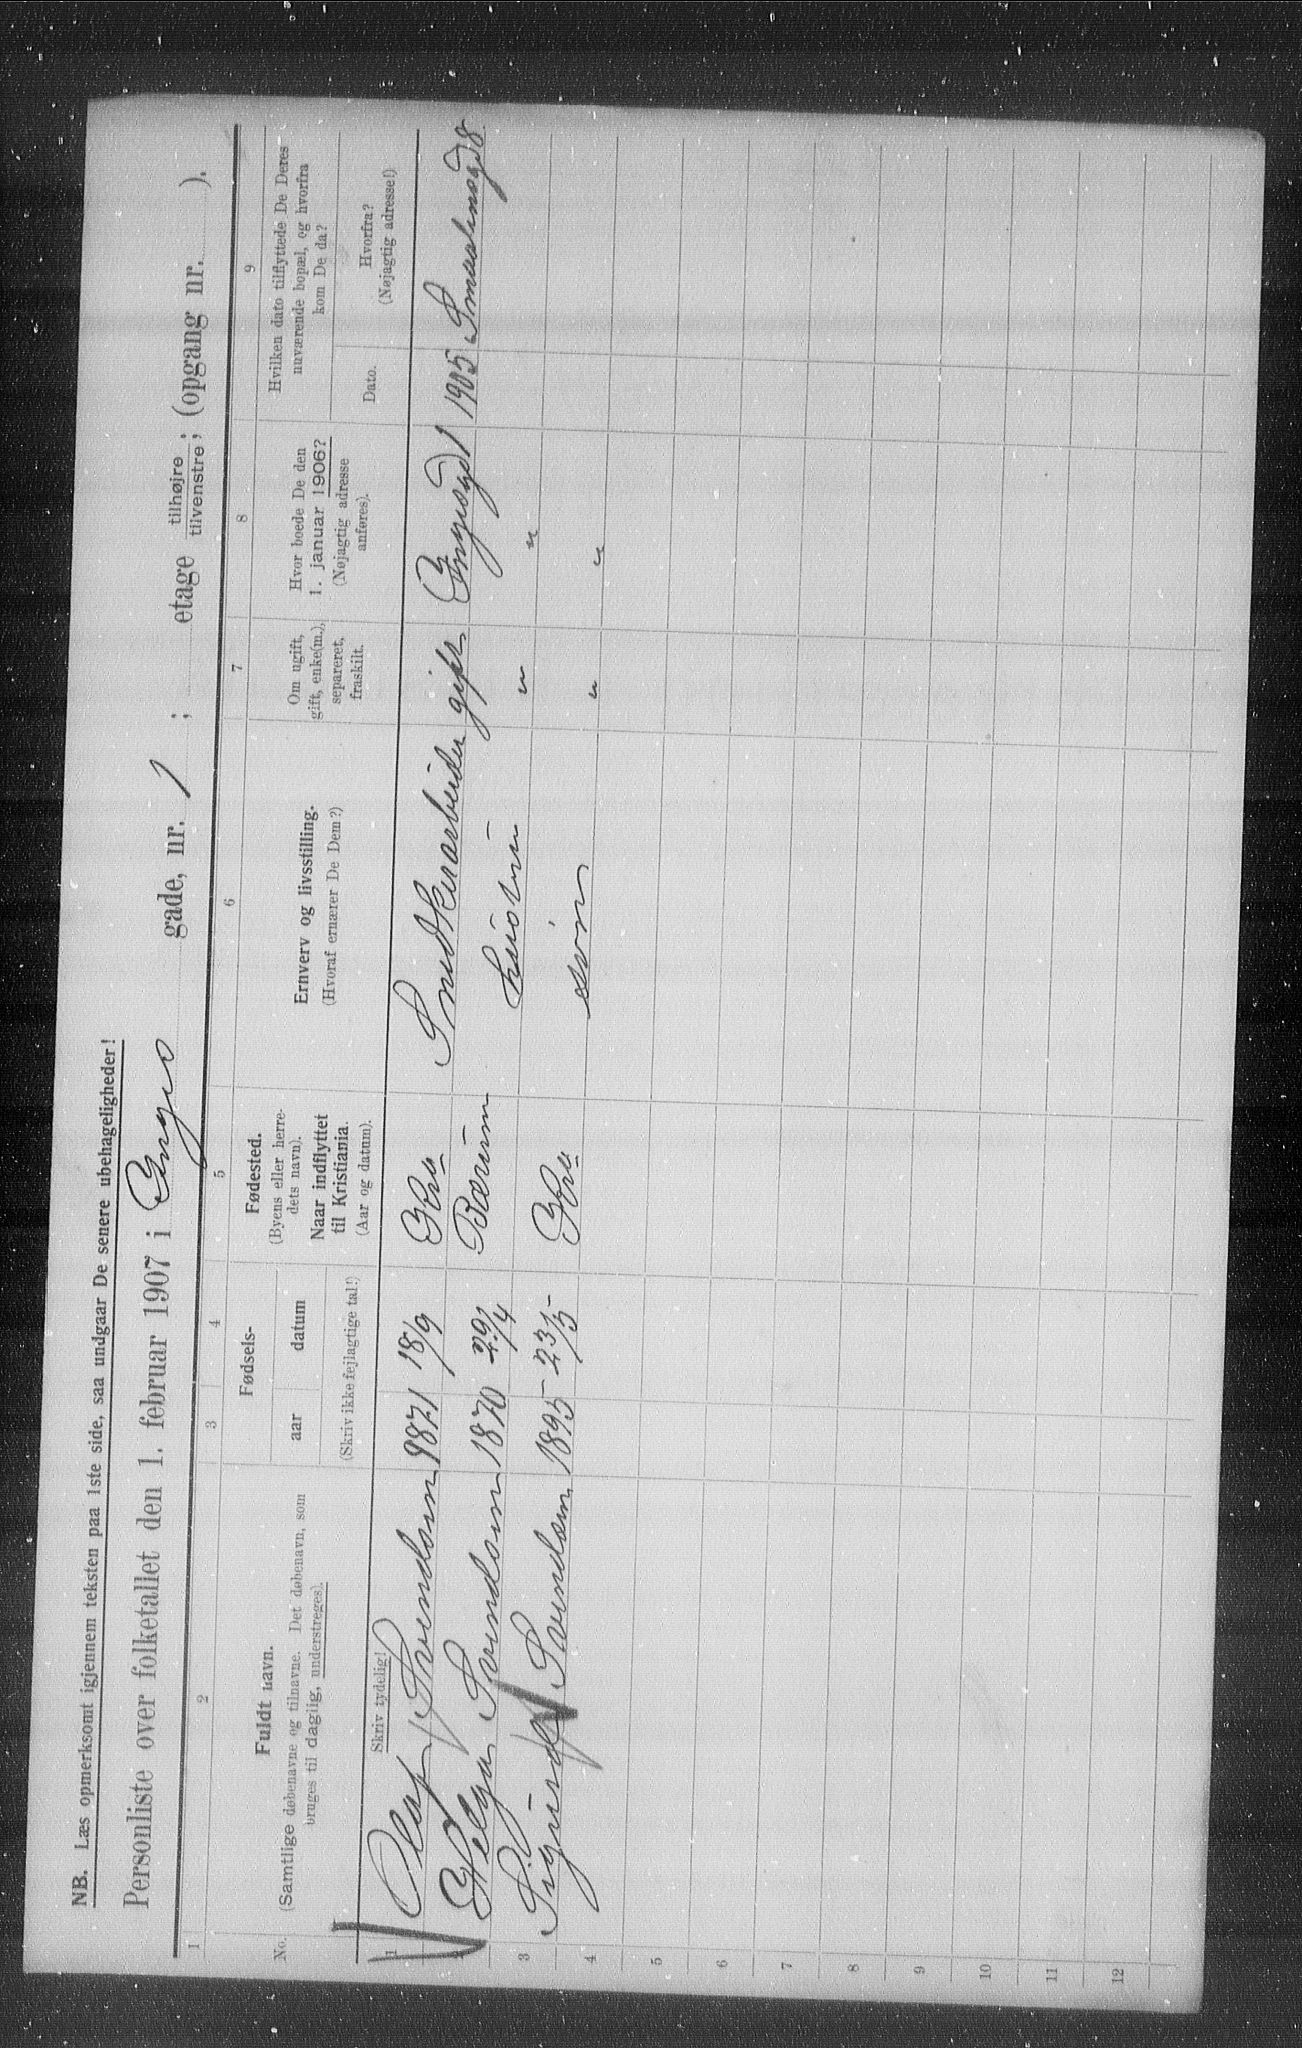 NB. Læs opmerksomt igjennem teksten paa 1ste side, saa undgaar De senere ubehageligheder!
Personliste over folketallet den 1. februar 1907 i Enges gade, nr. 1 ; etage tilhøjre tilvenstre ; (opgang nr. ).
1 2 3 4 5 6 7 8 9
No. Fuldt navn.
(Samtlige døbenavne og tilnavne. Det døbenavn, som
bruges til daglig, understreges).
Skriv tydelig!
Fødsels-
aar datum
(Skriv ikke fejlagtige tal!)
Fødested.
(Byens eller herre-
dets navn).
Naar indflyttet
til Kristiania.
(Aar og datum).
Erhverv og livsstilling.
(Hvoraf ernærer De Dem?)
Om ugift,
gift, enke(m.),
separeret,
fraskilt.
Hvor boede De den
1. januar 1906?
(Nøjagtig adresse
anføres).
Hvilken dato tilflyttede De Deres
nuværende bopæl, og hvorfra
kom De da?
Dato. Hvorfra?
(Nøjagtig adresse!)
1 Olaf Svendsen 1871 18/9 Kra Snedkerarbeider gift Engesgd 1 1905 Smaalensgd 8
2 Helga Svendsen 1870 29/4 Bærum hustru " "
3 Sigurd Svendsen 1895 23/5 Kra søn " "
4
5
6
7
8
9
10
11
12